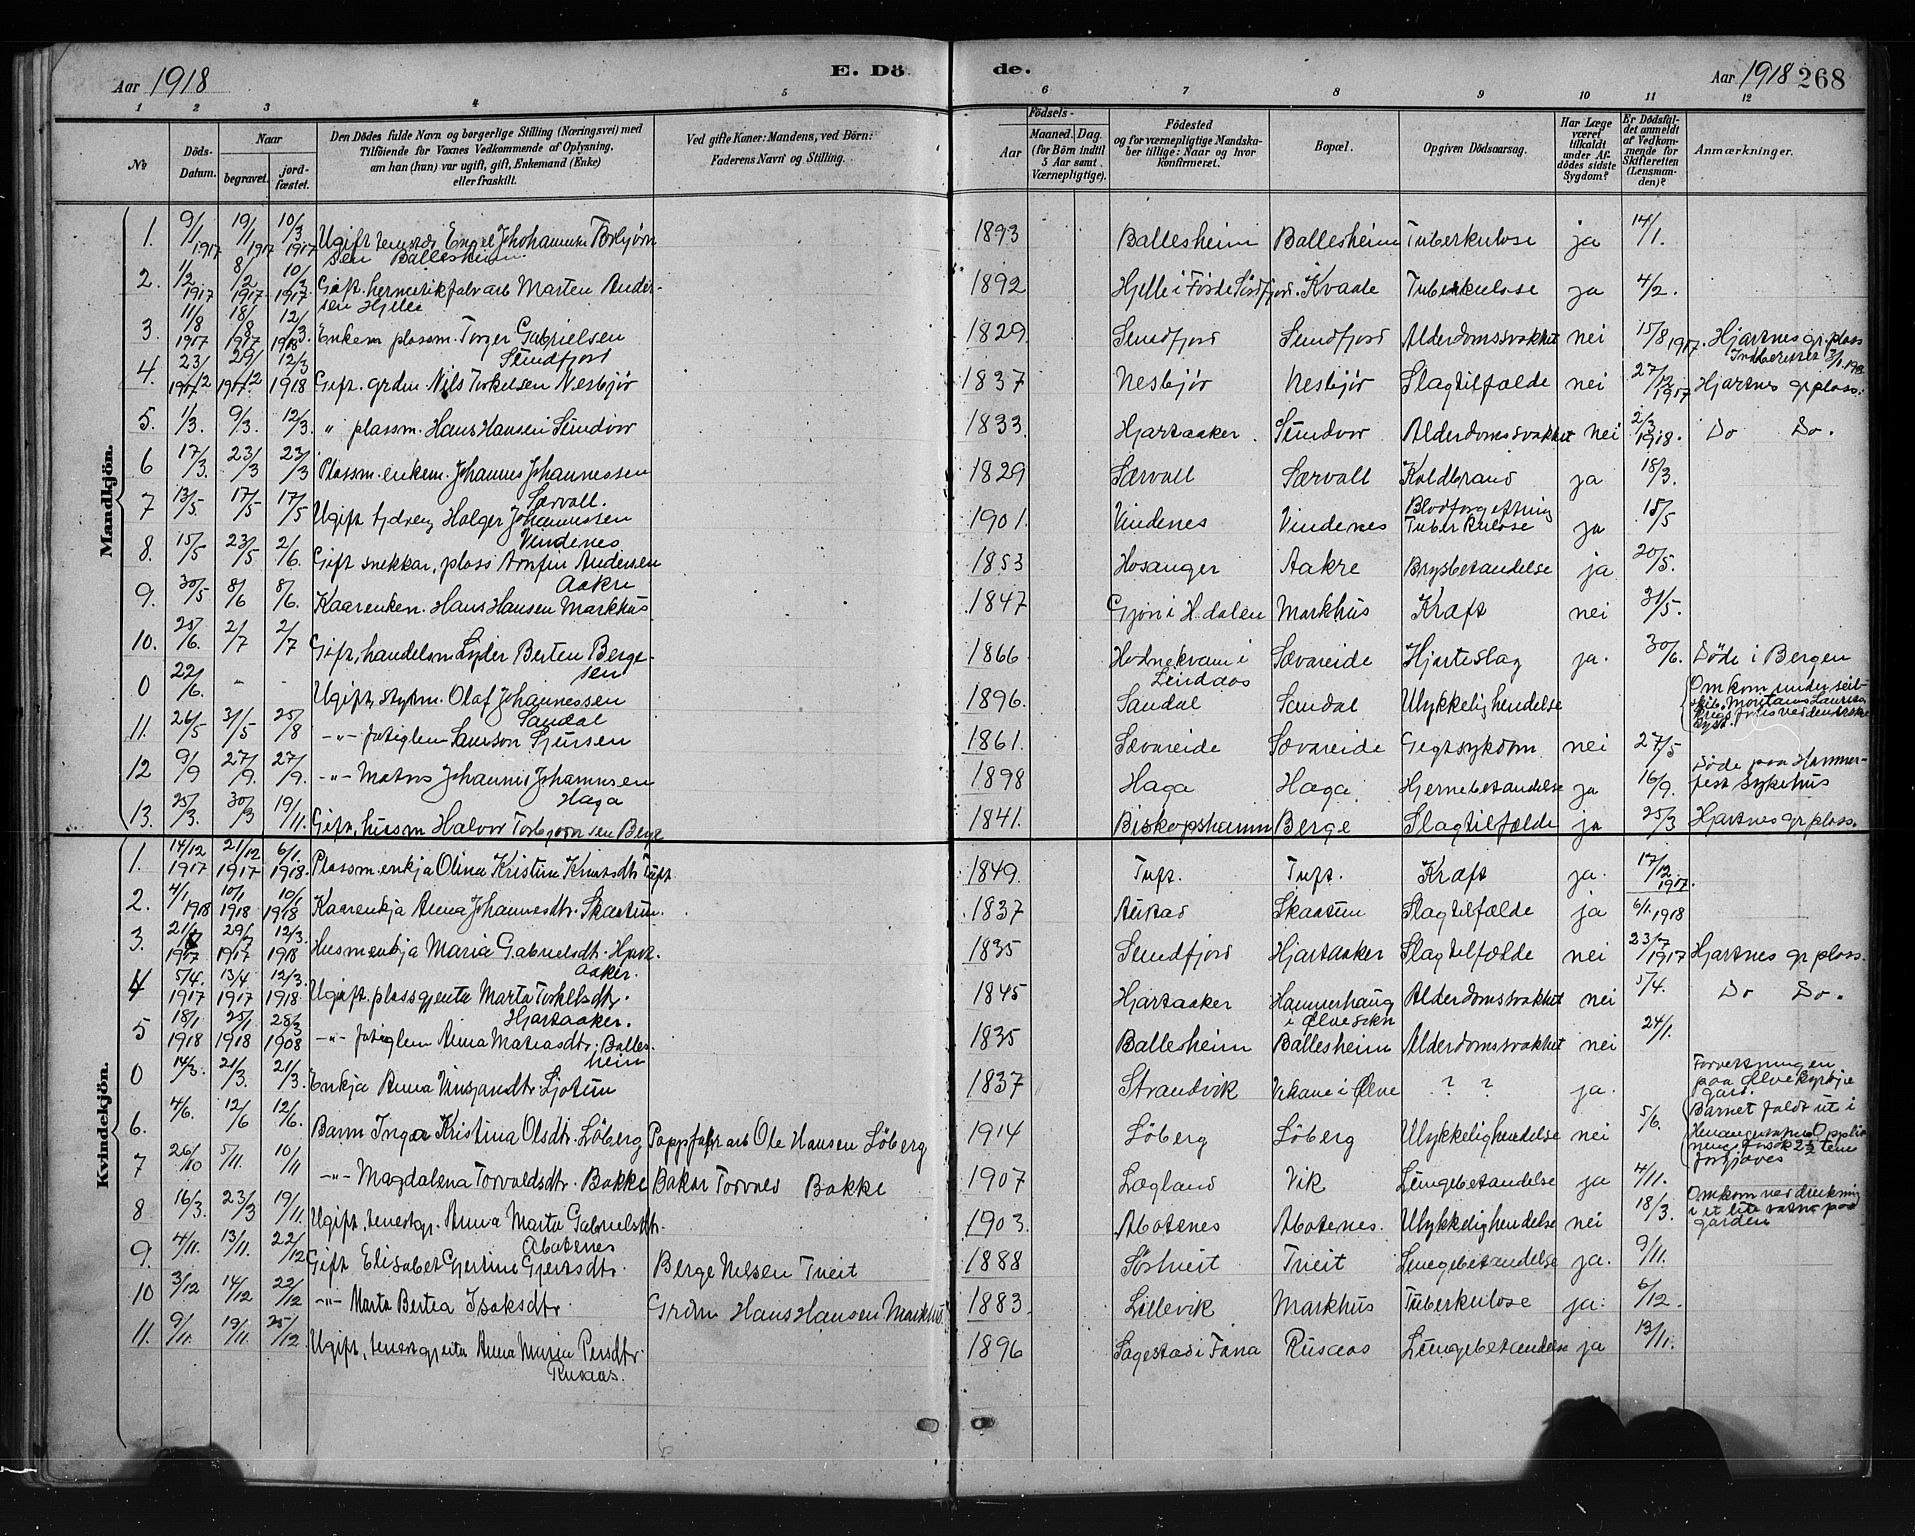 Aar 1918 E. Dö de. Aar 1918 268
1 2 3 4 5 6 7 8 9 10 11 12
№ Döds-Datum. Naar begravet. jord-fæstet. Den Dödes fulde Navn og borgerlige Stilling (Næringsvei) med Tilföiende for Voxnes Vedkommende af Oplysning, om han (hun) var ugift, gift, Enkemand (Enke) eller fraskilt. Ved gifte Koner: Mandens, ved Börn: Faderens Navn og Stilling. Födsels- Aar Maaned. Dag. (for Börn indtil 5 Aar samt Værnepligtige). Födested og for værnepligtige Mandskaber tillige: Naar og hvor konfirmeret. Bopæl. Opgiven Dödsaarsag. Har Læge været tilkaldt under Afdödes sidste Sygdom? Er Dödsfaldet anmeldt af Vedkommende for Skifteretten (Lensmanden)? Anmærkninger.
Mandkjön.
1. 9/1 1917 19/1 1917 10/3 1917 Ugift Engel Torbjørnsen Ballesheim 1893 Ballesheim Ballesheim Tuberkulose ja 14/1.
2. 1/2 1917 8/2 1917 10/3 1917 Gift. hermetikfabr arb Marten Andersen Hjelle 1892 Hjelle i Førde Söndfjord. Kvaale Tuberkulose ja 4/2.
3 11/8 1917 18/8 1917 12/3 1918 Enkem plassm. Torger Gabrielsen Sundfjord 1829 Sundfjord Sundfjord Alderdomssvakhet nei 15/8 1917. Hjartnes gr. plass
4. 23/12 1917 29/12 1917 12/3 1918 Gift. grdm Nils Torkelsen Nesbjør 1837 Nesbjør Nesbjør Slagtilfælde nei 27/12 1917 Hjartnes gr plass.
5. 1/3. 9/3. 12/3. " plassm. Hans Hansen Sundvor 1833. Hjartaaker. Sundvor Alderdomssvakhet nei 2/3 1918. Do Do.
6 17/3. 23/3 23/3 Plassm. enkem. Johannes Johannessen Særvoll. 1829 Særvoll Særvoll Koldbrand ja 18/3.
7 13/5. 17/5 17/5 Ugift Holger Johannessen Vindenes 1901. Vindenes Vindenes Blodforgiftning Tuberkulose ja 15/5
8. 15/5 23/5 2/6. Gift snekkar, plass Arnfin Andersen Aakre 1853 Hosanger Aakre Brystbetændelse ja 20/5.
9. 30/5 8/6 8/6. Kaarenkem. Hans Hansen Markhus 1847 Gjøn i H.dalen Markhus Kræft nei 31/5.
10. 25/6. 2/7 2/7 Gift, handelsm Lyder Berten Bergesen 1866 Hodnekvam i Lindaas Sævareide Hjerteslag ja. 30/6. Døde i Bergen
0 22/6. - - Ugift, styrm. Olaf Johannessen Sandal 1896. Sandal Sandal Ulykkelig hendelse Omkom under
11. 26/5 31/5 25/8 -"- fatiglem Samson Sjursen 1861. Sævareide Sævareide Gigtsykdom nei 27/5
12 9/9 27/9. 27/9. -"- Matros Johannes Johannesen Haga 1898 Haga Haga. Hjernebetændelse ja 16/9. Døde paa Hammerfest Sykehus
13. 25/3. 30/3 19/11. Gift, husm Halvor Torbjørnsen Berge 1841. Biskopshamn Berge Slagtilfælde ja 25/3 Hjartnes gr plass.
Kvindekjön.
1. 14/12 1917 21/12 1917 6/1. 1918. Plassm. enkja Olina Kristina Knutsdtr Tuft 1849. Tuft. Tuft. Kræft ja. 17/12 1917.
2. 4/1 1918 10/1 1918 10/1 1918 Kaarenkja Anna Johannesdtr. Skaatun. 1837 Austad Skaatun Slagtilfælde ja 6/1. 1918
3. 21/7 1917 29/7 1917 12/3. 1918 Husmenkja Maria Gabrielsdtr. Hjartaaker. 1835 Sundfjord Hjartaaker Slagtilfælde nei 23/7 1917 Hjartnes gr plass.
4 5/4. 1917 13/4 1917 12/3. 1918. Ugift plassgjenta Marta Torkelsdtr. Hjartaaker. 1845 Hjartaaker Hammerhaug i Ølve sokn Alderdomssvakhet nei 5/4. Do Do.
5 18/1 1918 25/1 1918 28/3 1908 -"- fatiglem Anna Matiasdtr. Ballesheim 1835 Ballesheim Ballesheim Alderdomssvakhet nei 24/1.
0 14/3. 21/3. 21/3. Enkja Anna Ljotun 1837 Strandvik Vikane i Ølve ? ? ja. paa Ølve kyrkjegard.
6. 4/6. 12/6 12/6. Barn Inga Kristina Olsdtr. Løberg Pappfabr arb Ole Hansen Løberg 1914 Løberg Løberg Ulykkelighendelse nei 5/6. Barnet faldt ut i
7 26/10 5/11. 10/11 -"- Magdalena Torvaldsdtr. Bakke Bakar Bakke 1907 Lægland Vik Lungebetændelse ja 4/11.
8 16/3. 23/3 19/11. Ugift, tenestgj. Anna Marta Gabrielsdtr. Abotenes 1903. Abotenes Abotenes. Ulykkelighendelse nei 18/3. Omkom ved drukning i et lite vatn paa garden
9. 4/11. 13/11. 22/12 Gift Elisabet Gjertine Gjertsdtr Berge Nilsen Tveit 1888 Sørtveit Tveit Lungebetændelse ja. 9/11.
10 3/12 14/12 22/12 -"- Marta Bertea Isaksdtr. Grdm Hans Hansen Markhus 1883. Lillevik Markhus Tuberkulose ja. 6/12.
11. 9/11. 19/11. 25/12. Ugift, tenestgjenta Anna Maria Persdtr. Rusaas. 1896 Søgestad i Fana Rusaas Lungebetændelse ja 13/11.